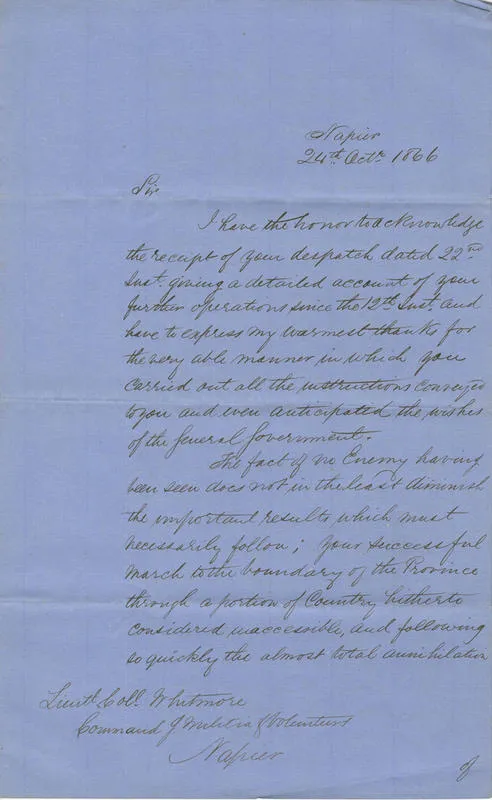 Napier
24th Octr. 1866
Sir
I have the honor to acknowledge
the receipt of your despatch dated 22nd
Inst. giving a detailed account of your
further operations since the 12th Inst. and
have to express my warmest thanks for
the very able manner in which you
carried out all the instructions conveyed
to you and even anticipated the wishes
of the General Government.
The fact of no Enemy having
been seen does not in the least diminish
the important results which must
necessarily follow; your successful
march to the boundary of the Province
through a portion of Country hitherto
considered inaccessible, and following
so quickly the almost total annihilation
Lieutt. Coll. Whitmore
Command g Militia & Volunteers
Napier
of